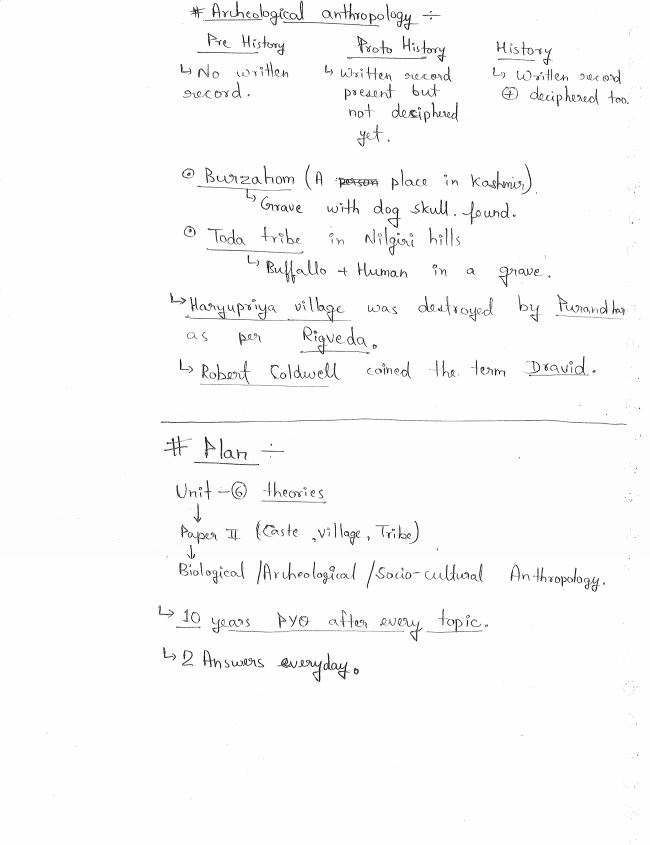 # Archeological anthropology ÷
Pre History
↳ No written
record.
Proto History
↳ Written record
present but
not deciphered
yet.
History
↳ Written record
⊕ deciphered too.
⊙ Burzahom (A person place in Kashmir)
↳ Grave with dog skull. found.
⊙ Toda tribe in Nilgiri hills
↳ Buffallo + Human in a grave.
↳ Haryupriya village was destroyed by Purandhar
as per Rigveda.
↳ Robert Coldwell coined the term Dravid.
# Plan ÷
Unit - ⑥ theories
↓
Paper II (Caste, village, Tribe)
↓
Biological / Archeological / Socio-cultural Anthropology.
↳ 10 years PYQ after every topic.
↳ 2 Answers everyday.